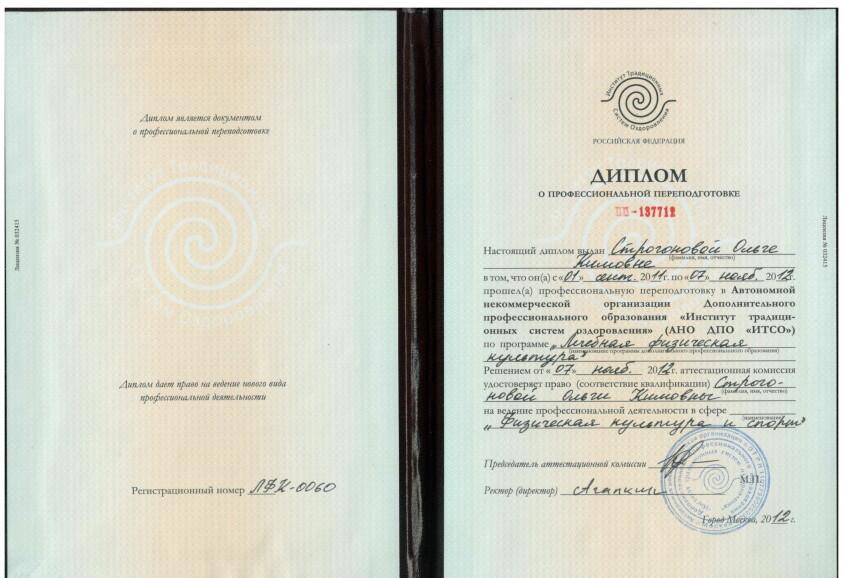 Диплом является документом
о профессиональной переподготовке
Институт Традиционных
Систем Оздоровления
Лицензия № 032415
Диплом дает право на ведение нового вида
профессиональной деятельности
Регистрационный номер ЛФК-0060
Институт Традиционных
Систем Оздоровления
РОССИЙСКАЯ ФЕДЕРАЦИЯ
ДИПЛОМ
О ПРОФЕССИОНАЛЬНОЙ ПЕРЕПОДГОТОВКЕ
ПП-137712
Настоящий диплом выдан Строгоновой Ольге
(фамилия, имя, отчество)
Кимовне
в том, что он(а) с «01» сент. 2011г. по «07» нояб. 2012г.
прошел(а) профессиональную переподготовку в Автономной
некоммерческой организации Дополнительного
профессионального образования «Институт традици-
онных систем оздоровления» (АНО ДПО «ИТСО»)
по программе „Лечебная физическая
(наименование программы дополнительного профессионального образования)
культура"
Решением от «07» нояб. 2012г. аттестационная комиссия
удостоверяет право (соответствие квалификации) Строго-
(фамилия, имя, отчество)
новой Ольги Кимовны
на ведение профессиональной деятельности в сфере
(наименование)
„Физическая культура и спорт"
Председатель аттестационной комиссии
М.П.
Ректор (директор) Агапкин
Город Москва, 2012г.
Лицензия № 032415